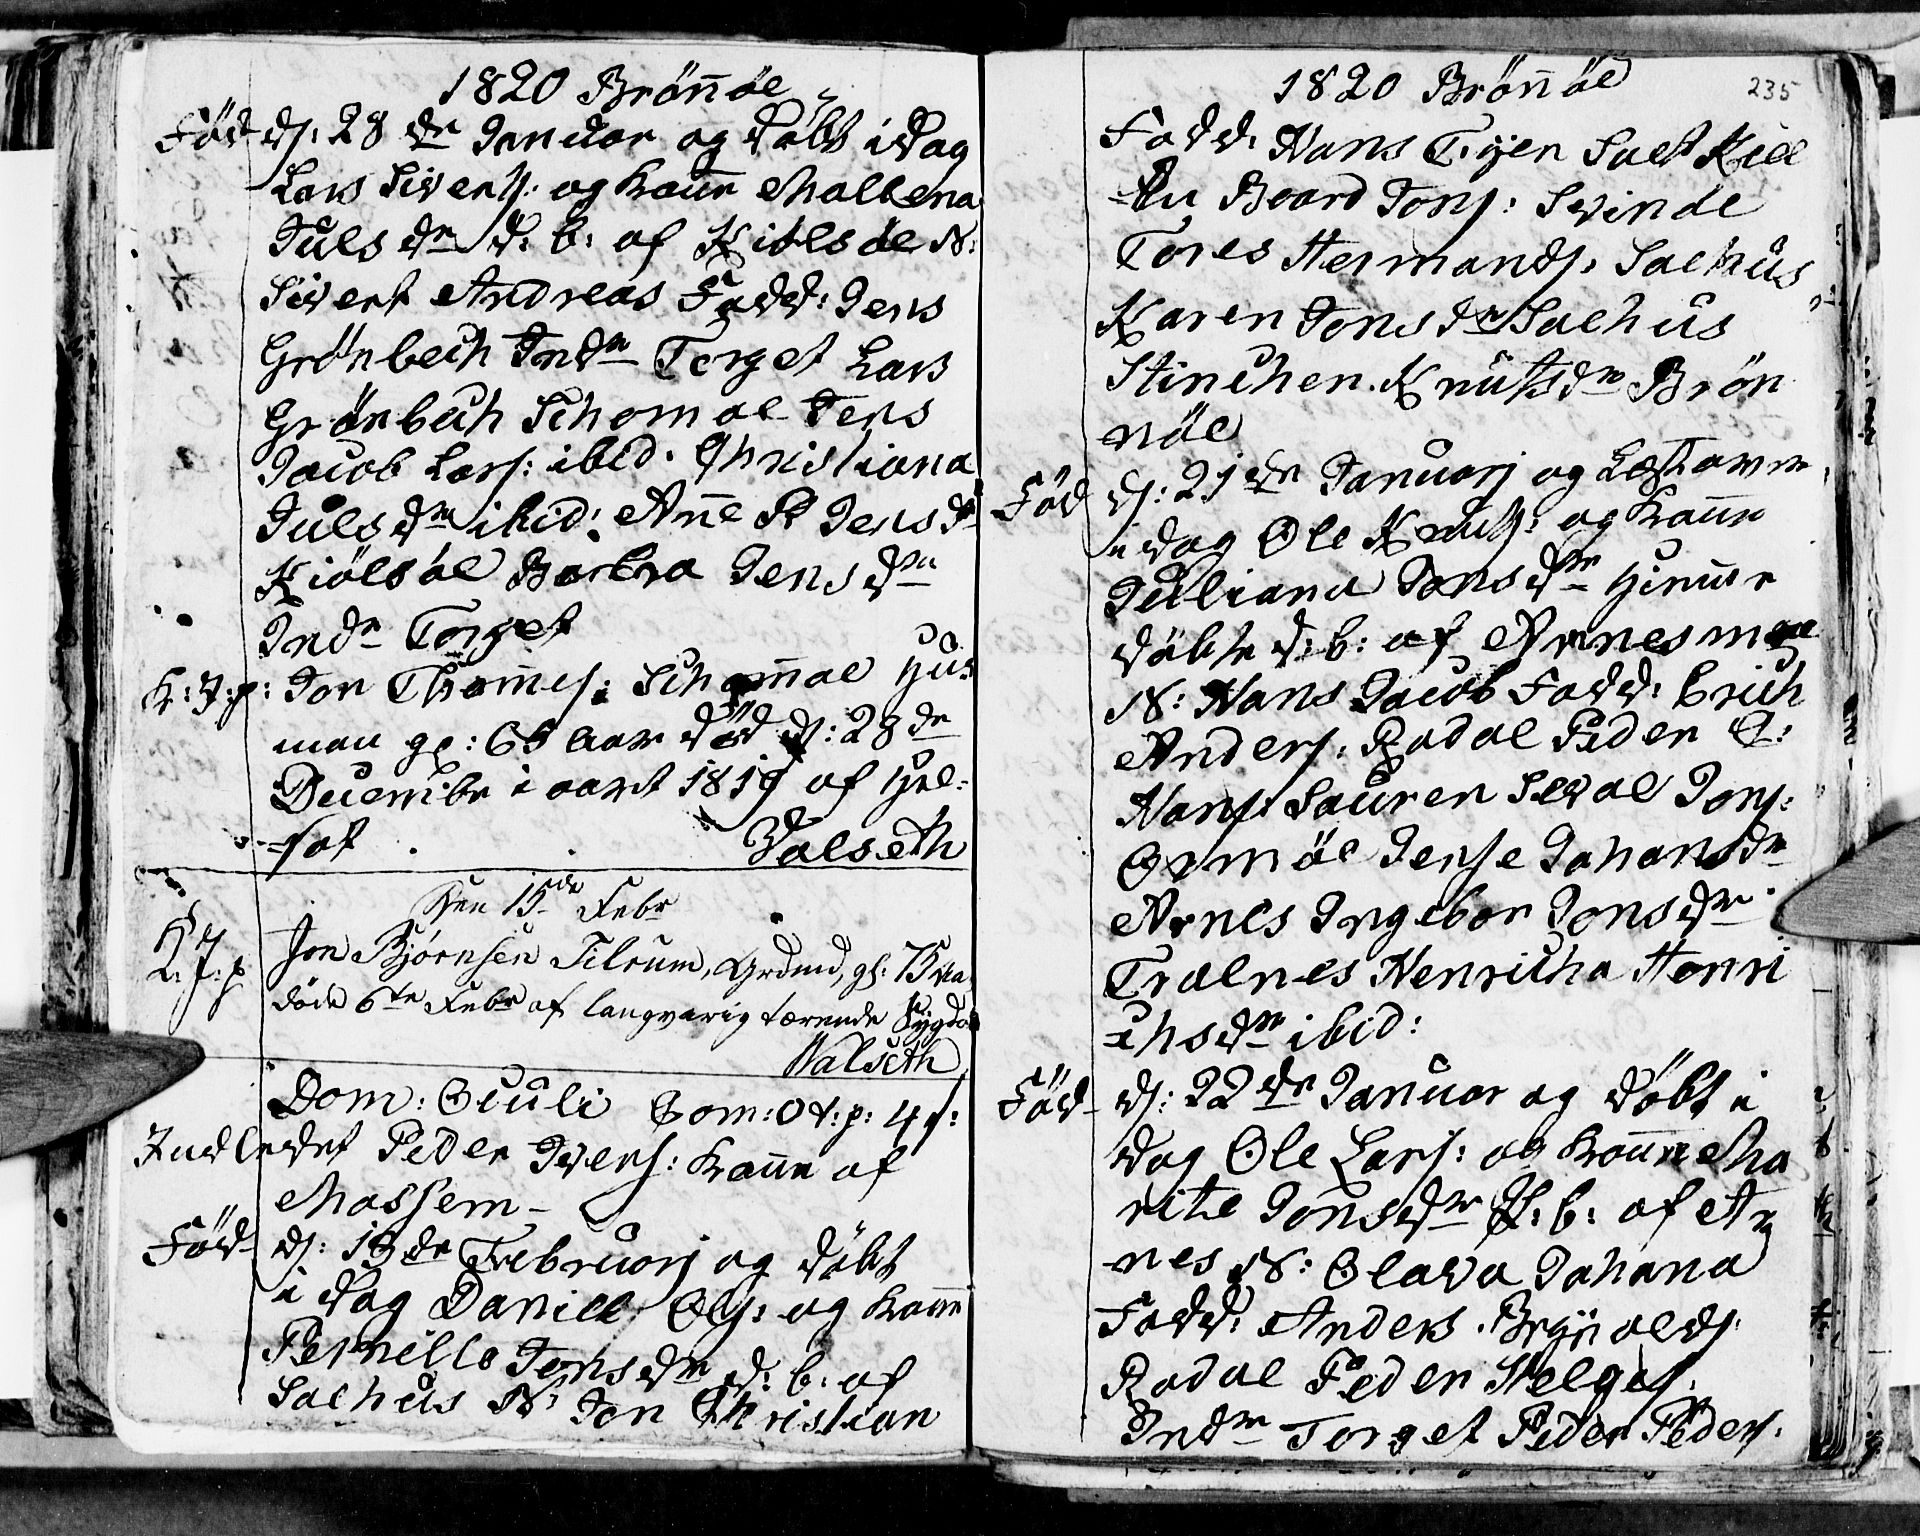 1820 Brönöe
Föd d: 28 de Januar og döbt i dag
Lars Sivers: og Kone Malbena
Juls dr d: b: af Kiölsöe N:
Sivert Andreas Fadd: Jens
Grönbech Indr Torget Lars
Grönbech Schomoe Jens
Jacob Lars: ibid. Christiana
Juls dr ibid: Ane P Jens dr
Kiölsöe Barbra Jens dr
Indr Torget
K: J: p: Jon Thomes: Schomoe Huus
man gl: 65 Aar död d: 28 de
Decembr i aaret 1819 af Hel-
sot . Valseth
Den 15de Febr
K: J: p Jon Bjørnsen Tilrum, Grdmd, gl: 75 Aar
döde 6te Febr af langvarig tærende Sygdom
Valseth
Dom: Oculi Com: 0 t: p: 4 s:
Indledet Peder Ivers: Kone af
Mossem
Föd d: 19 de Februarj og döbt
i dag Daniel Ols: og Kone
Pernille Jons dr d: b: af
Salhus N: Jon Christian
1820 Brönöe 235
Fadd: Hans Tijen Salt Kiel
En Baard Jons: Svinde
Tores Hermands: Salhus
Karen Jons dr Salhus
Stinchen Knuts dr Brön
nöe
Föd d: 21 de Januarj og
i dag Ole Knuts: og Kone
Juliana Jons dr hiemme
döbte d: b: af Arnesmoe
N: Hans Jacob Fadd: Erich
Anders: Rodal Peder O:
Hans: Lauren Seval Jons:
Ormöe Jense Johans dr
Arnes Ingebor Jons dr
Trælnes Henricha Henri
chs dr ibid:
Föd d: 22 de Januar og döbt i
dag Ole Lars: og Kone Ma
rite Jons dr P: b: af Ar
nes N: Olava Johana
Fadd: Anders Brÿnolds:
Rodal Peder Helges:
Indr Torget Peder Peders: